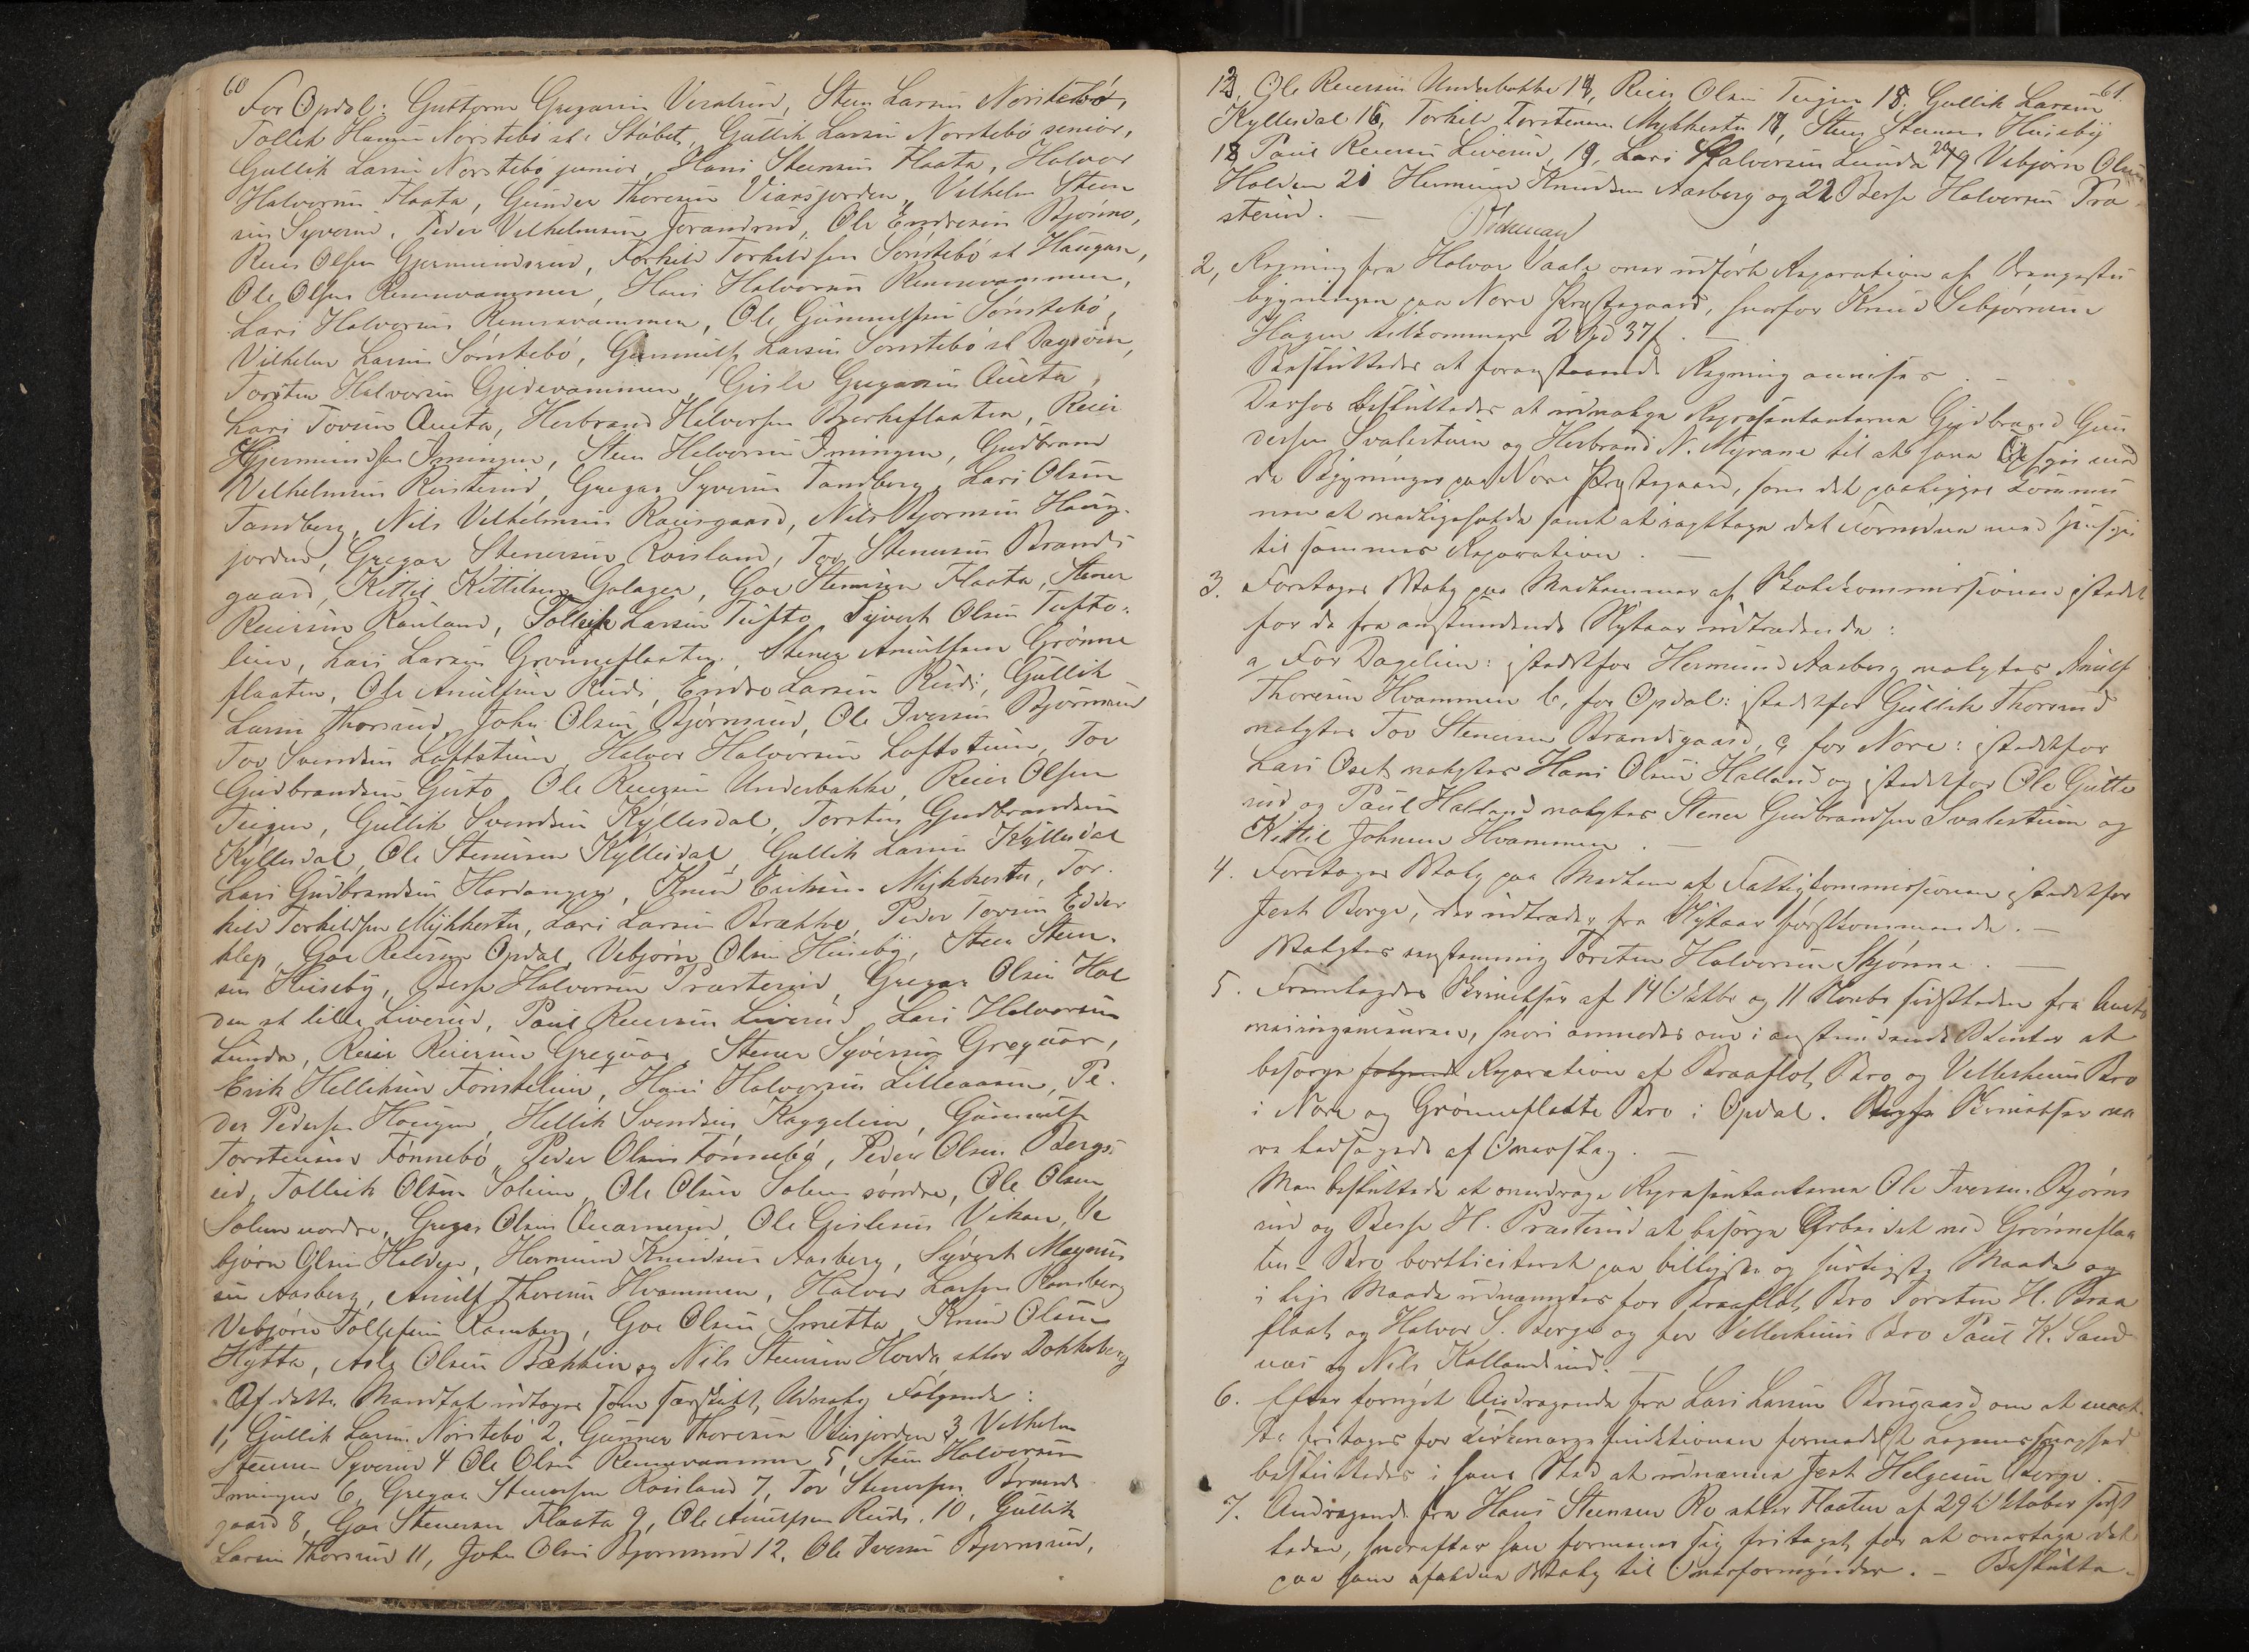 60
For Opdal: Guttorm Gregarsen Veralrud, Steen Larsen Norstebø,
Tollik Hansen Norstebø el. Støbet, Gullik Larsen Norstebø senior,
Gullik Larsen Norstebø junior, Hans Steensen Flaata, Halvor
Halvorsen Flaata, Gunder Thoresen Viansjorden, Vilhelm Steen
sen Syverud, Peder Vilhelmsen Jorandrud, Ole Endresen Bjønno,
Reier Olsen Gjermundsrud, Torkild Torkildsen Sønstebø el Haugen,
Ole Olsen Rennevammen, Hans Halvorsen Rennevammen,
Lars Halvorsen Rennevammen, Ole Gunnulfsen Sønstebø,
Vilhelm Larsen Sønstebø, Gunnulf Larsen Sønstebø el
Torsten Halvorsen Gjedevammen, Gisle Gregarsen Aueta,
Lars Tovsen Aueta, Herbrand Halvorsen Bjerkeflaaten, Reier
Hjermundsen Imingen, Steen Halvorsen Imingen, Gudbrand
Vilhelmsen Reisterud, Gregar Syversen Tandberg, Lars Olsen
Tandberg, Nils Vilhelmsen Raaisgaard, Nils Bjornsen Haug-
jorden, Gregar Stenersen Rouland, Tov Stenersen Brands
gaard, Kittil Kittilsen Golager, Goe Stenersen Flaata, Stener
Reiersen Rauland, Tollef Larsen Tufto, Syvert Olsen Tufto-
lien, Lars Larsen Grønneflaaten, Stener Anulfsen Grønne
flaaten, Ole Anulfsen Ruds, Endre Larsen Ruds, Gullik
Larsen Thorsrud, John Olsen Bjørnsrud, Ole Iversen Bjørnsrud
Tov Svendsen Loftstuen, Halvor Halvorsen Loftstuen, Tov
Gudbrandsen Gusto, Ole Reiersen Underbakke, Reier Olsen
Teigen, Gullik Svendsen Kyllesdal, Torsten Gudbrandsen
Kyllesdal, Ole Stenersen Kyllesdal, Gullik Larsen Kyllesdal
Lars Gudbrandsen Hardanger, Knud Eriksen Mykkestu, Tor-
kild Torkildsen Mykkestu, Lars Larsen Brække, Peder Tovsen Edder
klep, Goe Reiersen Opdal, Vebjørn Olsen Huseby, Steen Steen-
sen Huseby, Berse Halvorsen Præsterud, Gregar Olsen Hol
den el lille Liverud, Paul Reiersen Liverud, Lars Halvorsen
Lunda, Reier Reiersen Grequar, Stener Syversen Grequar,
Erik Helliksen Tønstelien, Hans Halvorsen Lilleaasen, Pe-
der Pedersen Hougen, Hellik Svendsen Kaggelien, Gunnulf
Torstensen Fønnebø, Peder Olsen Fønnebø, Peder Olsen Bergs-
eid, Tollick Olsen Solem, Ole Olsen Solem søndre, Ole Olsen
Solem nordre, Gregar Olsen Qvarnerud, Ole Gislesen Viken, Ve
bjørn Olsen Holden, Hermund Knudsen Aasberg, Syvert Magnus
sen Aasberg, Anulf Thoresen Hvammen, Halvor Larsen Ramberg
Vebjørn Tollefsen Ramberg, Goe Olsen Smetta, Knud Olsen
Hytta, Asle Olsen Bækkin og Nils Steensen Horda eller Dokkeberg
Af dette Mandtal udtoges som særskilt Udvalg Følgende:
1, Gullik Larsen Norstebø 2. Gunner Thoresen Viusjorden 3, Vilhelm
Steensen Syverud 4 Ole Olsen Rennevammen 5, Steen Halvorsen
Imingen 6, Gregar Stenersen Rouland 7, Tov Stenersen Brands
gaard 8, Goe Stenersen Flaata 9, Ole Anulfsen Ruds, 10, Gullik
Larsen Thorsrud 11, John Olsen Bjørnsrud 12. Ole Iversen Bjørnsrud,
61.
13, Ole Reiersen Underbakke 14, Reier Olsen Teigen 15. Gullik Larsen
Kyllesdal 16, Torkild Torstensen Mykkestu 17, Steen Steensen Huseby
18 Paul Reiersen Liverud, 19, Lars Halvorsen Lunda 20 Vebjørn Olsen
Holden 21 Hermund Knudsen Aasberg og 22 Berse Halvorsen Præ
sterud. —
2, Regning fra Halvor Vaale over udført Reparation af Drengestu
bygningen paa Nore Præstegaard, hvorfor Knud Sebjørnsen
Hagen tilkommer 2 Spd 37 s. —
Besluttedes at foranstaaende Regning anvises. —
Derhos besluttedes at udvælge Repræsentanterne Gudbrand Gun
dersen Svalestuen og Herbrand N. Myrane til at have Opsyn med
de Bygninger paa Nore Præstegaard, som det paaligger Kommu
nen at vedligeholde samt at iagttage det Fornødne med Hensyn
til sammes Reparation. —
3. Foretoges Valg paa Medlemmer af Skolekommissionen istedet
for de fra anstundende Nytaar udtrædende:
a, For Dagelien: istedetfor Hermund Aasberg valgtes Anulf
Thoresen Hvammen b, for Opdal: istedetfor Gullik Thorsrud
valgtes Tov Stenersen Brandsgaard, c, for Nore: istedetfor
Lars Oset valgtes Hans Olsen Halland og istedetfor Ole Gutte
rud og Paul Halland valgtes Stener Gudbrandsen Svalestuen og
Kittil Johnsen Hvammen. —
4. Foretoges Valg paa Medlem af Fattigkommissionen istedetfor
Jest Borge, der udtræder fra Nytaar førstkommende. —
Valgtes enstemmig Torsten Halvorsen Skjønne. —
5. Fremlagdes Skrivelser af 14 Oktbr og 11 Novbr sidstleden fra Amts
veiingeniøren, hvori anmodes om i anstundende Vinter at
besørge følgende Reparation af Braaflot Bro og Vellesheim Bro
i Nore og Grønneflatte Bro i Opdal. Skrivelser va
re ledsagede af Overslag. —
Man besluttede at overdrage Repræsentanterne Ole Iversen Bjørns
rud og Berse H. Præsterud at besørge Arbeidet ved Grønneflaa
ten Bro bortliciteret paa billigste og hurtigste Maade og
i lige Maade udnævntes for Braaflot Bro Torsten H. Braa
flaat og Halvor S. Borge og for Vellesheim Bro Paul K. Sand
nes og Nils Kallandsrud. —
6. Efter fornyet Andragende fra Lars Larsen Brugaard om at maat
te fritages for Kirkeværgefunktionen formedelst Legemssvaghed
besluttedes i hans Sted at udnævne Jest Helgesen Borge. —
7. Andragende fra Hans Steensen Ro eller Flaaten af 29 Oktober sidst
leden, hvorefter han formener sig fritaget for at overtage det
paa ham afaldne Valg til Overformynder. — Beslutte-